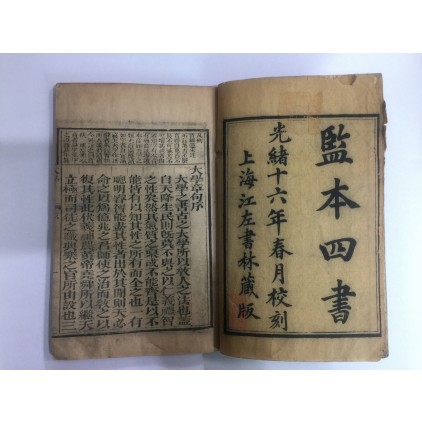 監本四書
光緒十六年春月校刻
上海江左書林藏版
大學章句序
大學之書古之大學所以教人之法也蓋
自天降生民則既莫不與之以仁義禮智
之性矣然其氣質之稟或不能齊是以不
能皆有以知其性之所有而全之也一有
聰明睿智能盡其性者出於其間則天必
命之以爲億兆之君師使之治而教之以
復其性此伏羲神農黃帝堯舜所以繼天
立極而司徒之職典樂之官所由設也三